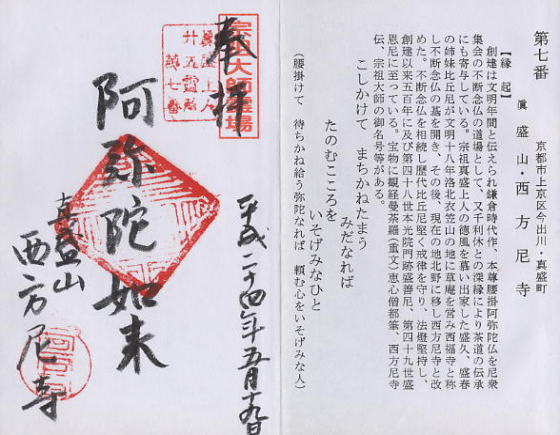 第七番
京都市上京区今出川・真盛町
眞盛山・西方尼寺
【縁起】
創建は文明年間と伝えられ鎌倉時代作、本尊腰掛阿弥陀仏を尼衆
集会の不断念仏の道場として、又千利休との深縁により茶道の伝承
にも寄与している。宗祖真盛上人の德風を慕い出家した盛久、盛春
の姉妹比丘尼が文明十八年洛北衣笠山の地に草庵を営み西福寺と称
し不断念仏の基を開き、その後、現在の地北野に移し西方尼寺と改
めた。不断念仏を相続し歴代比丘尼堅く戒律を守り、法燈堅持し、
創建以来五百年に及び第四十八世本光院門跡盛善尼、第四十九世盛
恩尼に至っている。宝物に観経曼荼羅(重文)恵心僧都筆、西方尼寺
伝、宗祖大師の御名号等がある。
こしかけて まちかねたまう
みだなれば
たのむこころを
いそげみなひと
(腰掛けて 待ちかね給う弥陀なれば 頼む心をいそげみな人)
奉拝
宗祖大師霊場
真盛上人
廿五霊場
第七番
平成二十四年五月十九日
阿弥陀如来
真盛山
西方尼寺